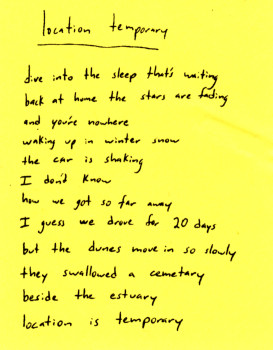 location temporary
dive into the sleep that's waiting
back at home the stars are fading
and you're nowhere
waking up in winter snow
the car is shaking
I don't know
how we got so far away
I guess we drove for 20 days
but the dunes move in so slowly
they swallowed a cemetary
beside the estuary
location is temporary